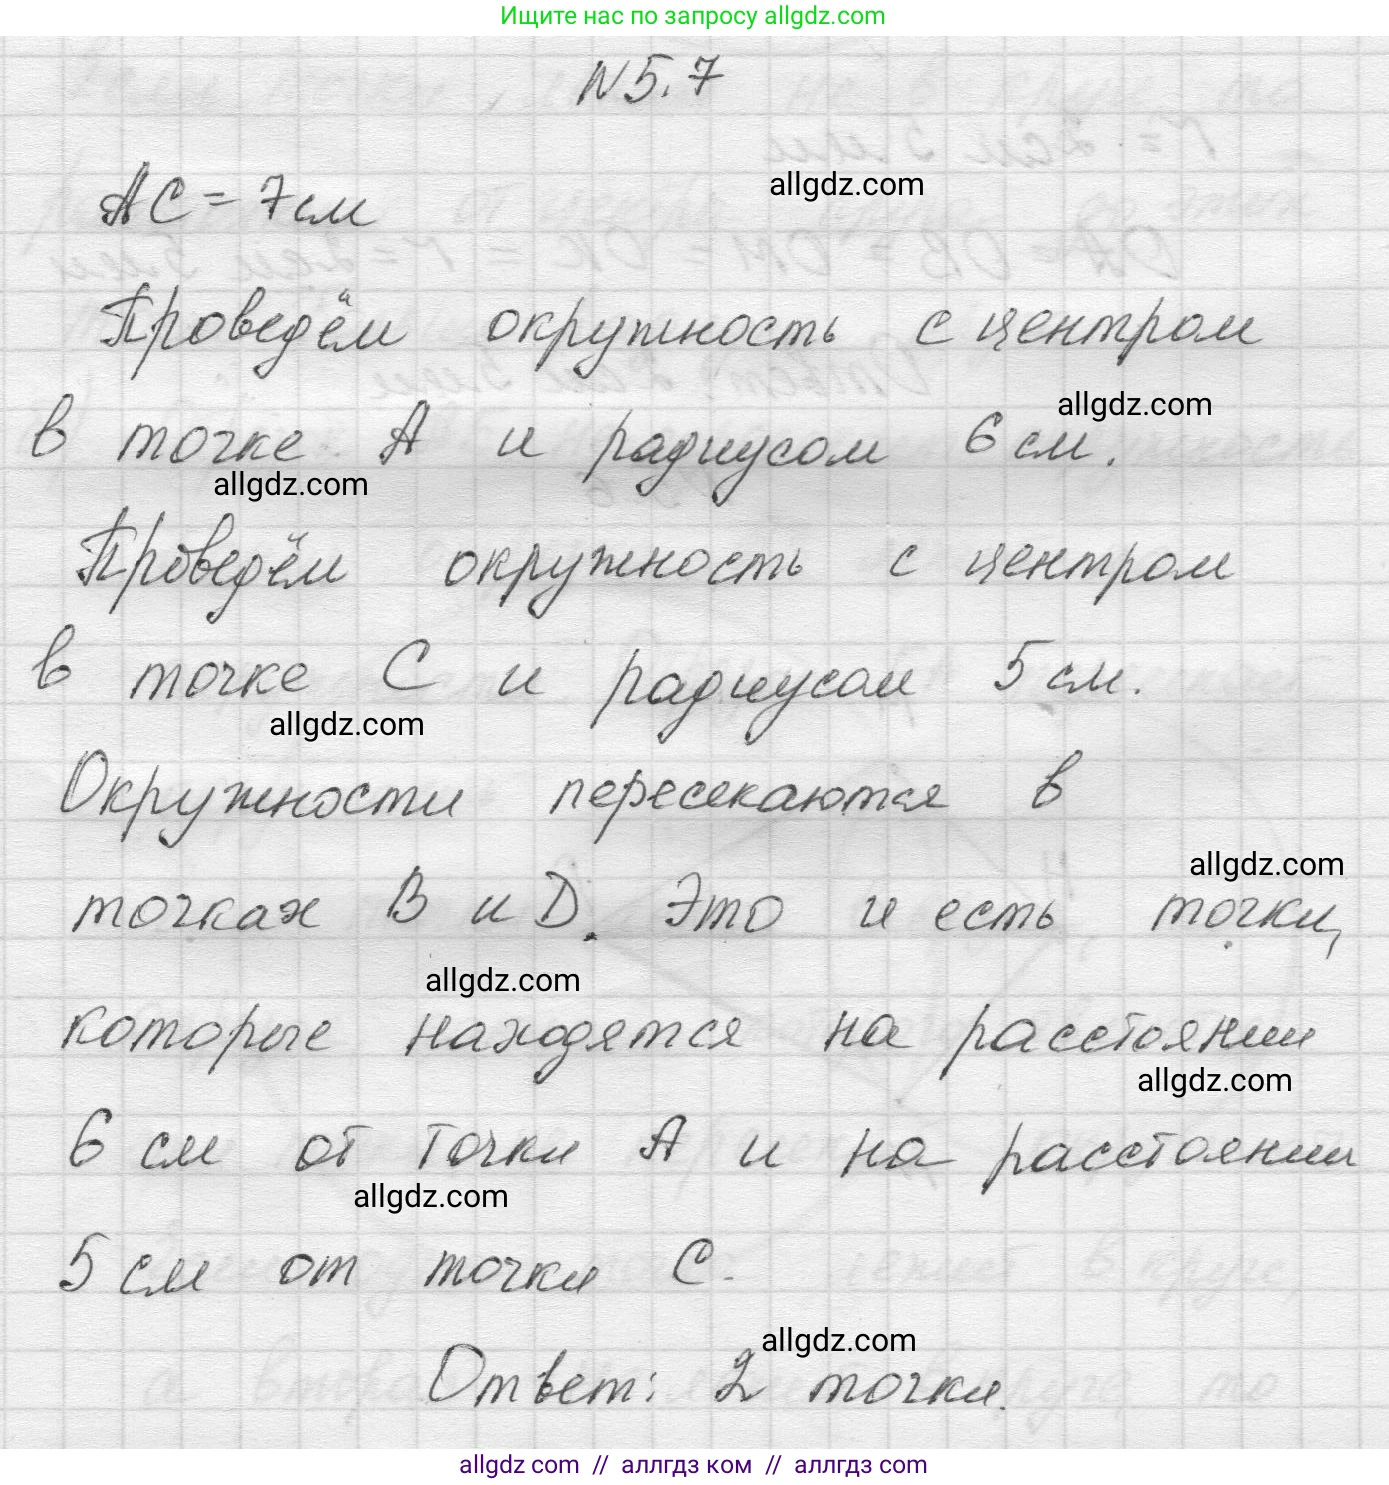 Ищите нас по запросу allgdz.com
N5.7
allgdz.com
АС = 7см
Проведём окружность с центром
allgdz.com
в точке А и радиусом 6 см.
allgdz.com
Проведём окружность с центром
в точке С и радиусом 5 см.
allgdz.com
Окружности пересекаются в
allgdz.com
точках В и D. Это и есть точки,
allgdz.com
которые находятся на расстоянии
allgdz.com
6 см от точки А и на расстоянии
allgdz.com
5 см от точки С.
allgdz.com
Ответ: 2 точки.
allgdz com // аллгдз ком // аллгдз com